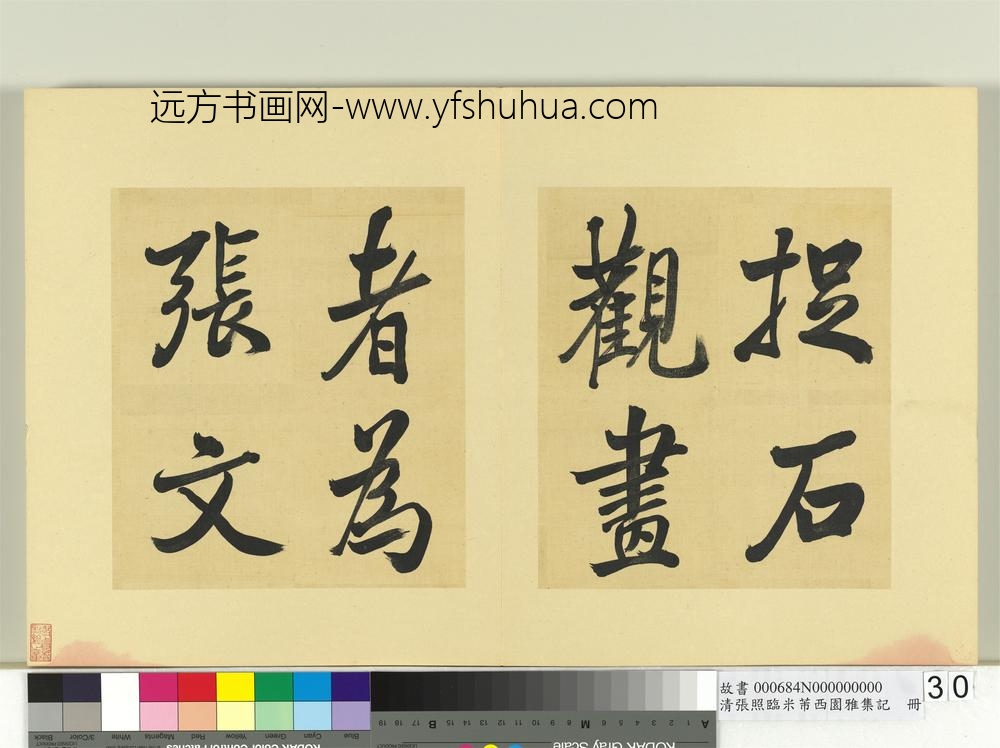 远方书画网-www.yfshuhua.com
捉石
觀畫
者為
張文
故書 000684N000000000
清張照臨米芾西園雅集記 冊
30
Blue
Cyan
Green
Yellow
Red
Magenta
White
3/Color
Black
KODAK Color Control Patches
KODAK Gray Scale
A 1 2 3 4 5 6 M 8 9 10 11 12 13 14 15 B 17 18 19